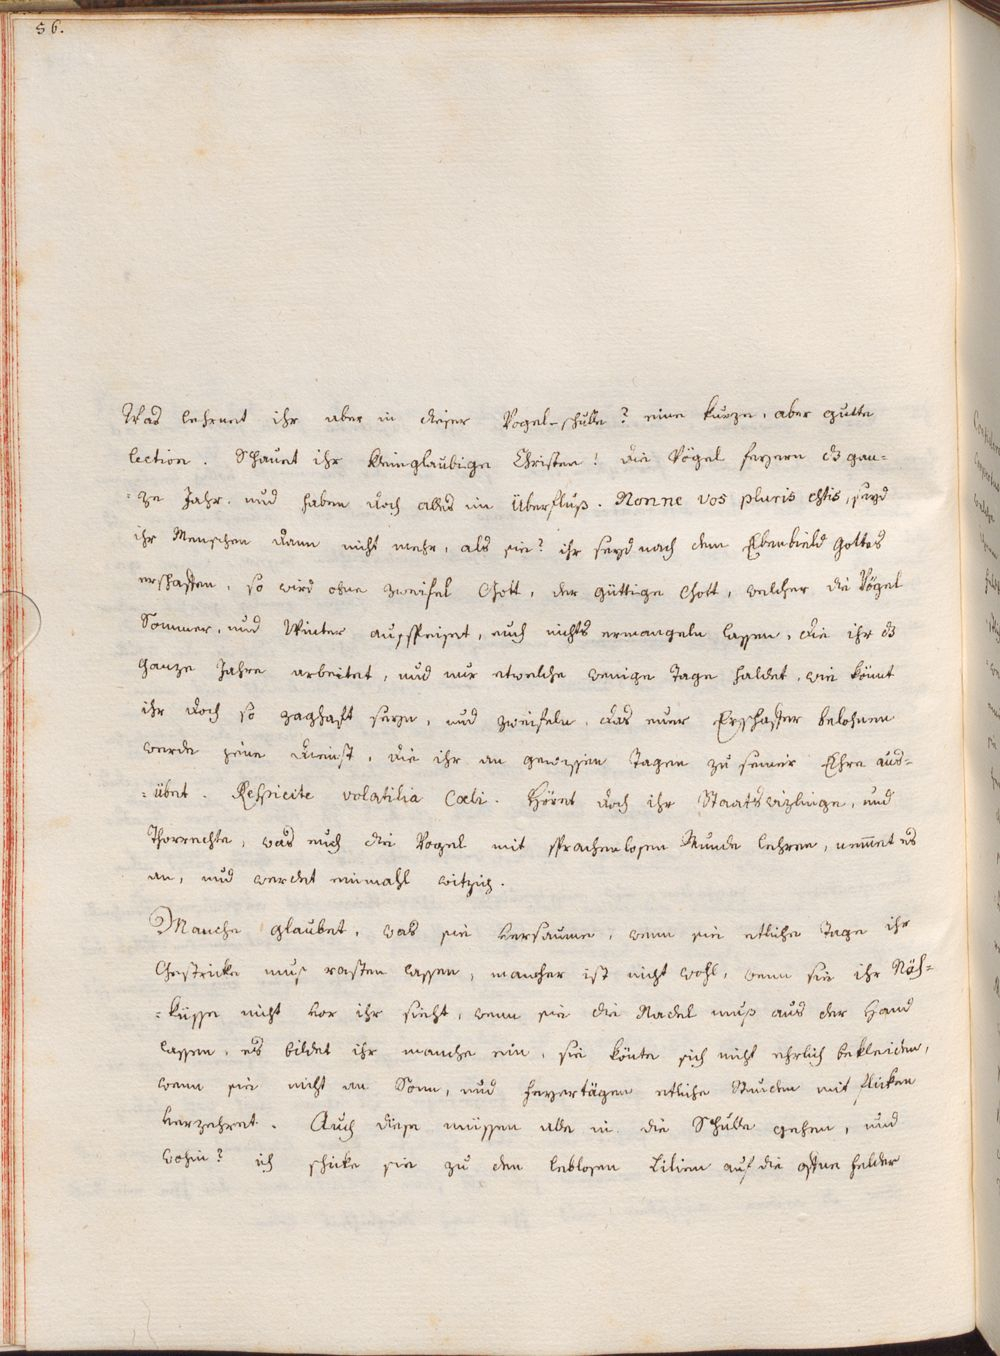 56.
Was lehrnet ihr aber in dieser Vogel-schulle? eine kurze, aber gutte
lection. Schauet ihr kleinglaubige Christen! die Vögel feyern ds gan-
-ze Jahr. und haben doch alles im Überfluß. Nonne vos pluris estis, seyd
ihr Menschen dann nicht mehr, als sie? ihr seyd nach dem Ebenbield Gottes
erschaffen, so wird ohne zweifel Gott, der güttige Gott, welcher die Vögel
Sommer, und Winter ausspeiset, euch nichts ermangeln lassen, die ihr ds
ganze Jahre arbeitet, und nur etwelche wenige Tage haldet, wie könnt
ihr doch so zaghaft seye, und zweifeln, das euer Erschaffer belohnen
werde jene dienst, die ihr an gewissen Tagen zu seiner Ehre aus-
-übet. Respicite volatilia Cœli. Höret doch ihr Staatswizlinge, und
Thorrechte, was euch die Vogel mit sprachenlosen Munde lehren, nem̅et es
an, und werdet einmahl witzig.
Manche glaubet, was sie versaume, wenn sie etliche Tage ihr
Gestricke muß rasten lassen, mancher ist nicht wohl, wenn sie ihr Näh-
-küsse nicht vor ihr sieht, wenn sie die Nadel muß aus der Hand
lassen, es bildet ihr manche ein, sie könte sich nicht ehrlich bekleiden,
wenn sie nicht an Sonn, und feyertägen etliche Stunden mit flicken
verzehret. Auch diese müssen alle in die Schulle gehen, und
wohin? ich schicke sie zu den leblosen Lilien auf die offne felder